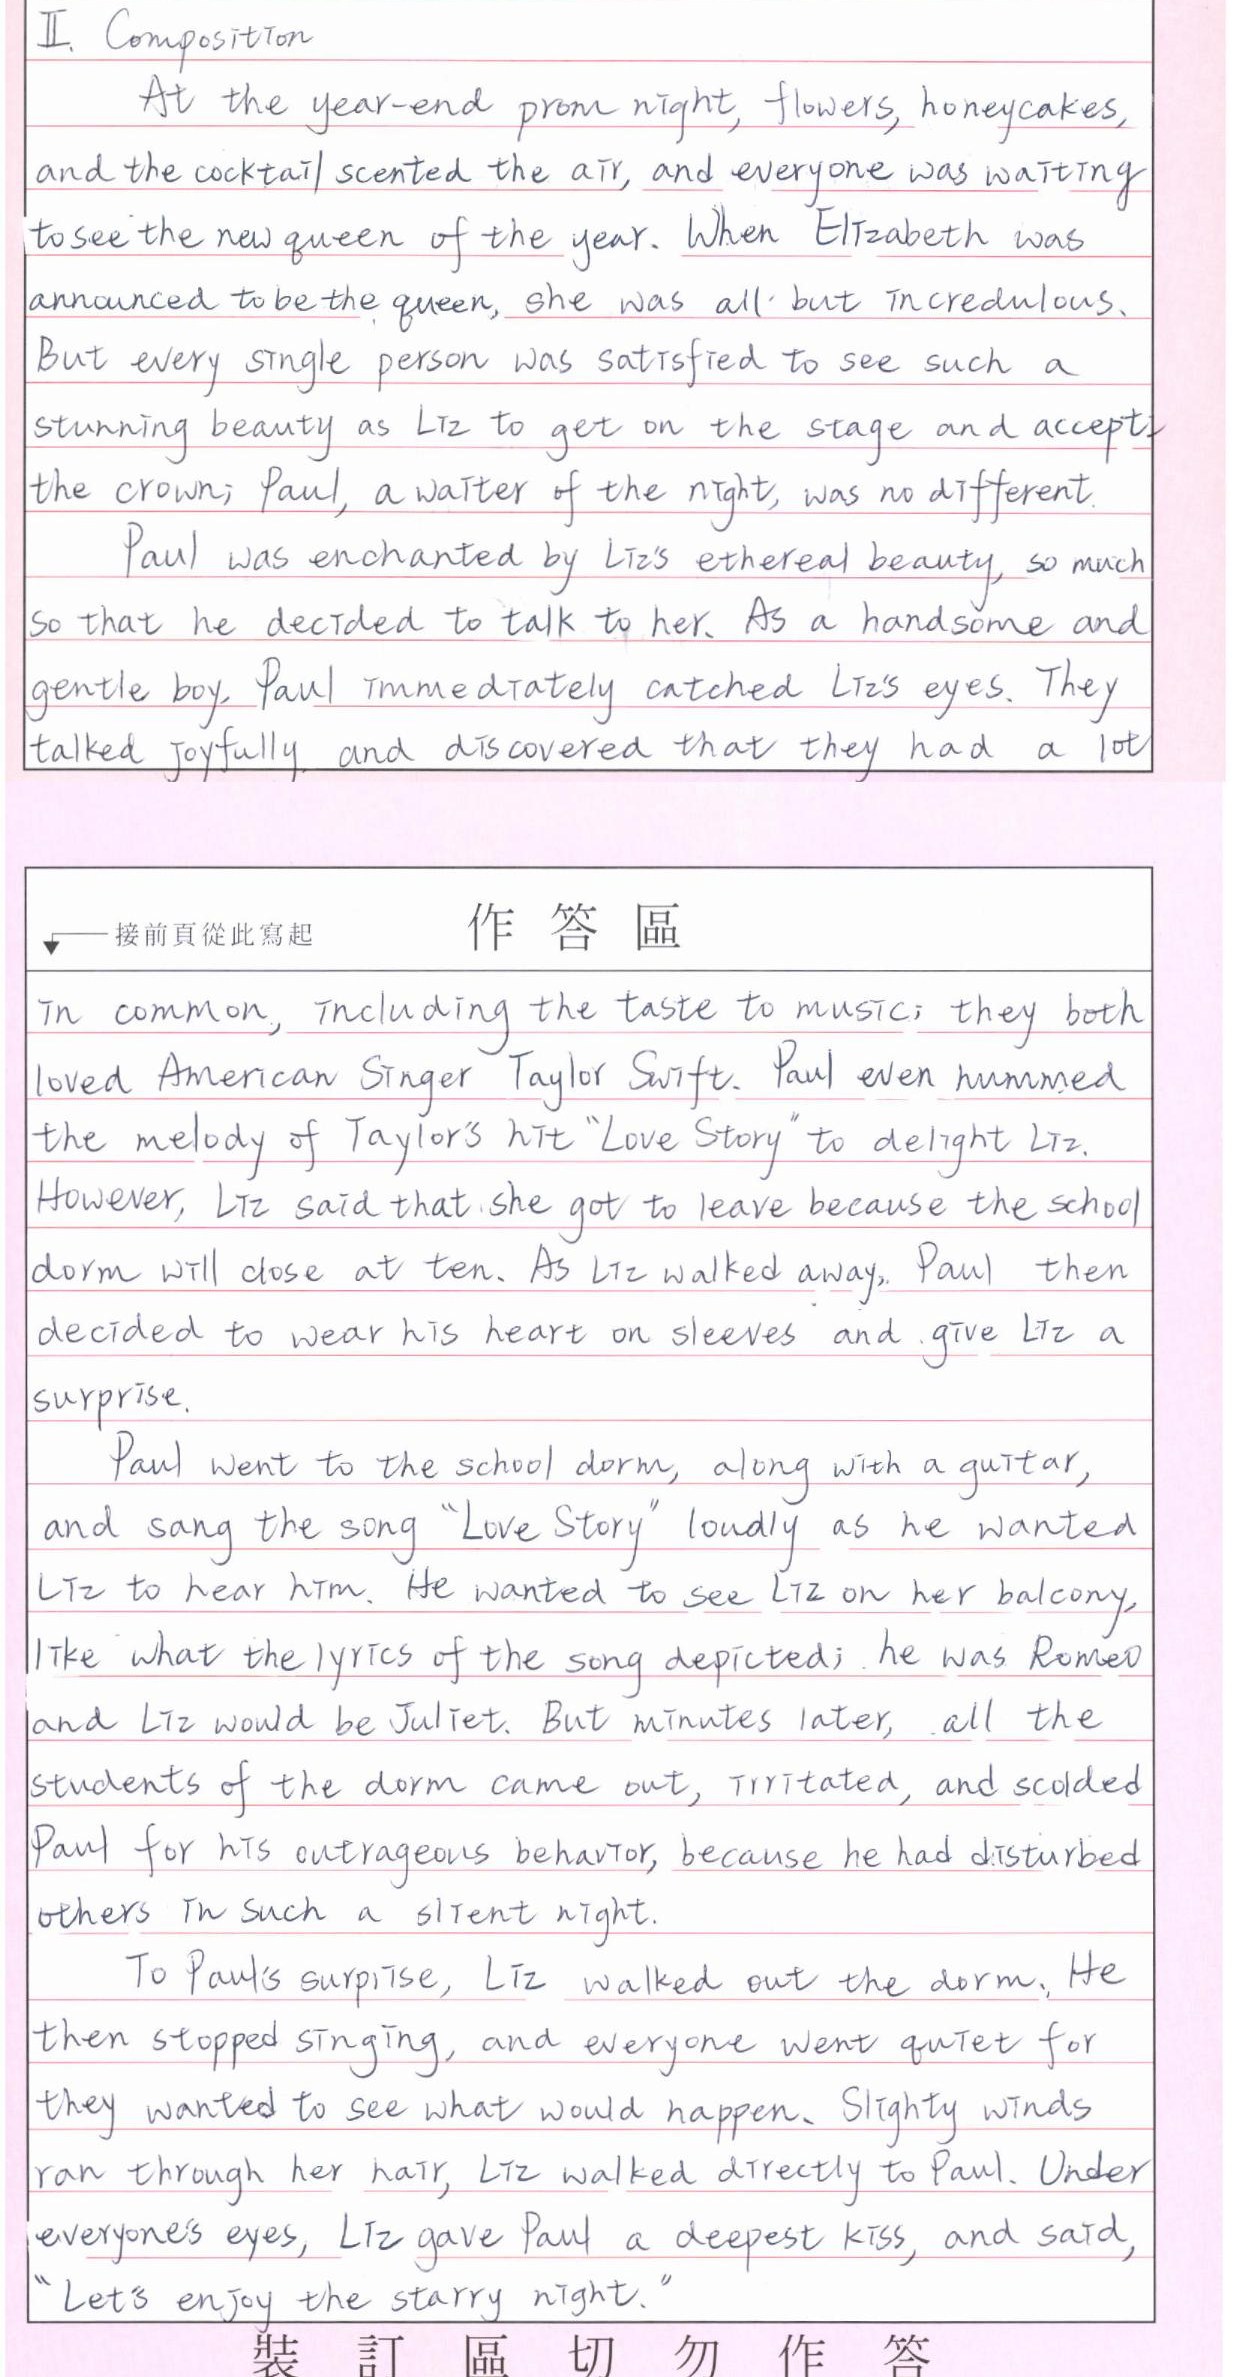 II. Composition
At the year-end prom night, flowers, honeycakes,
and the cocktail scented the air, and everyone was waiting
to see the new queen of the year. When Elizabeth was
announced to be the queen, she was all but incredulous.
But every single person was satisfied to see such a
stunning beauty as Liz to get on the stage and accept
the crown; Paul, a waiter of the night, was no different.
Paul was enchanted by Liz's ethereal beauty, so much
so that he decided to talk to her. As a handsome and
gentle boy, Paul immediately catched Liz's eyes. They
talked joyfully and discovered that they had a lot
接前頁從此寫起
作答區
in common, including the taste to music; they both
loved American Singer Taylor Swift. Paul even hummed
the melody of Taylor's hit "Love Story" to delight Liz.
However, Liz said that she got to leave because the school
dorm will close at ten. As Liz walked away, Paul then
decided to wear his heart on sleeves and give Liz a
surprise.
Paul went to the school dorm, along with a guitar,
and sang the song "Love Story" loudly as he wanted
Liz to hear him. He wanted to see Liz on her balcony,
like what the lyrics of the song depicted; he was Romeo
and Liz would be Juliet. But minutes later, all the
students of the dorm came out, irritated, and scolded
Paul for his outrageous behavior, because he had disturbed
others in such a slient night.
To Paul's surpise, Liz walked out the dorm. He
then stopped singing, and everyone went quiet for
they wanted to see what would happen. Slighty winds
ran through her hair, Liz walked directly to Paul. Under
everyone's eyes, Liz gave Paul a deepest kiss, and said,
"Let's enjoy the starry night."
裝訂區切勿作答